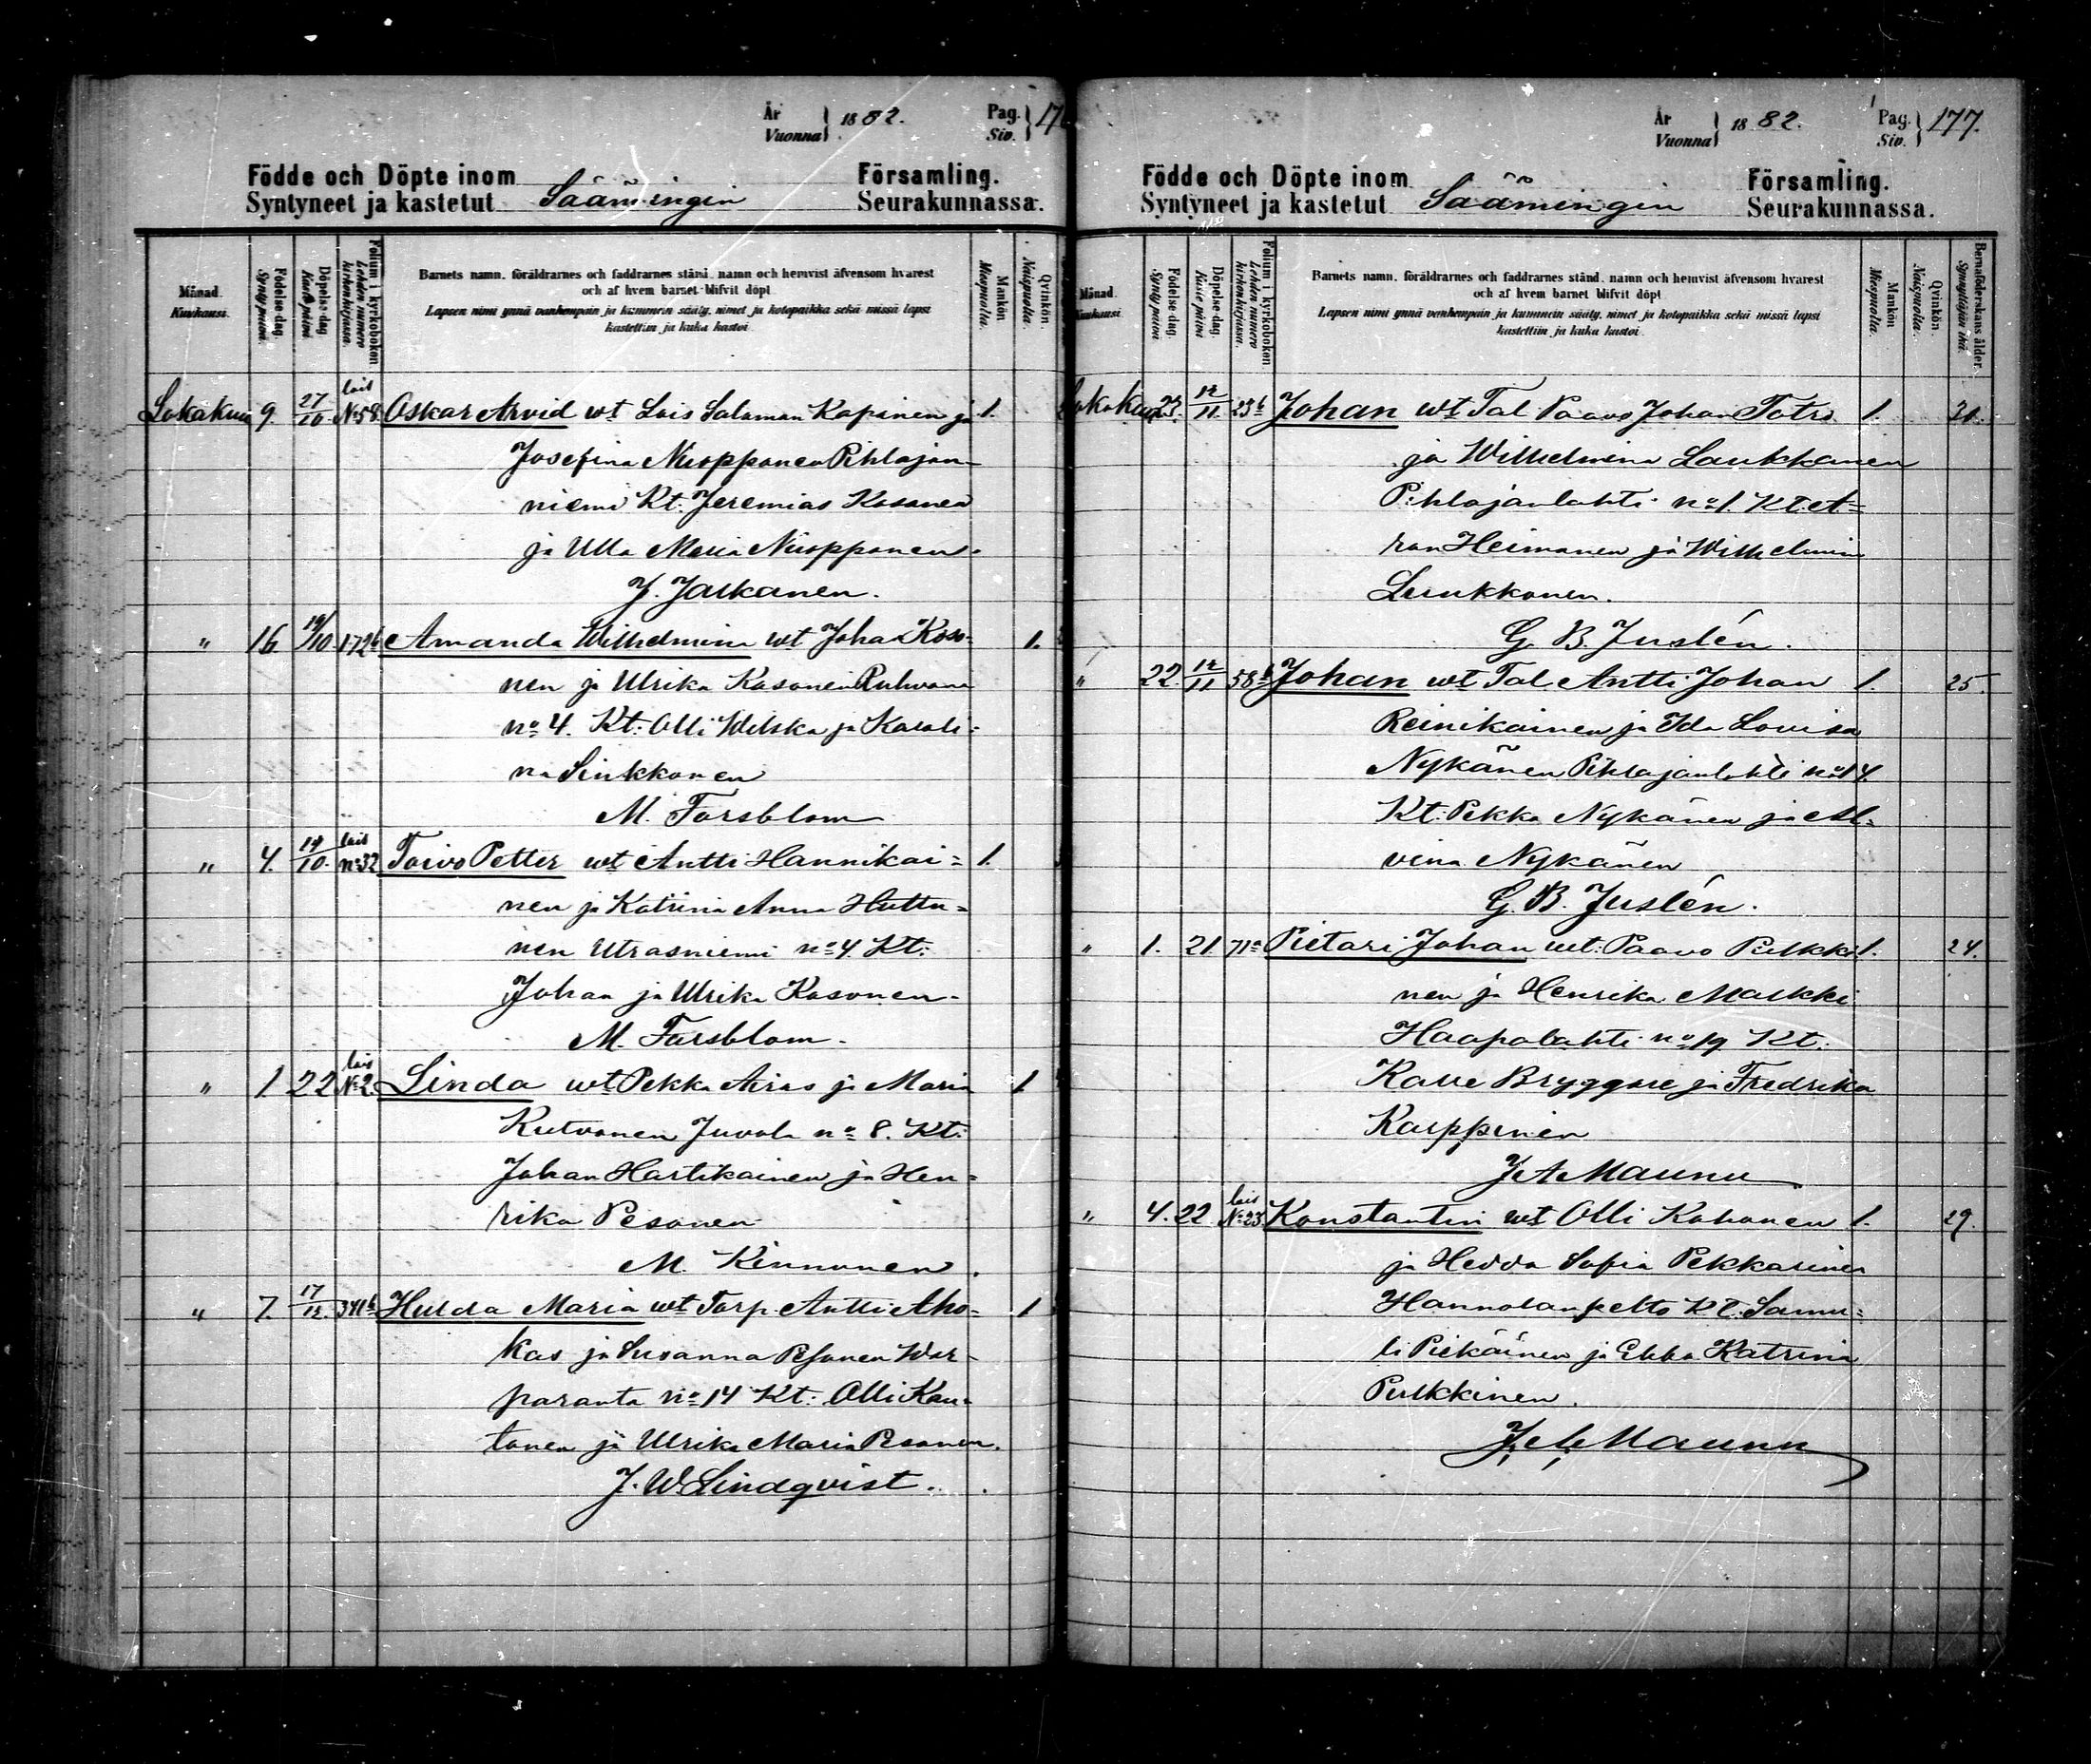 År
Vuonna } 1882.
Pag.
Siv. } 17
Födde och Döpte inom
Syntyneet ja kastetut Säämingin
Församling.
Seurakunnassa.
Månad.
Kuukausi.
Födelse-dag.
Synty päivä
Döpelse-dag.
Kaste päivä
Folium i kyrkoboken
Lehden numero
kirkonkirjassa.
Barnets namn, föräldrarnes och faddrarnes stånd, namn och hemvist äfvensom hvarest
och af hvem barnet blifvit döpt.
Lapsen nimi ynnä vanhempain ja kummein sääty, nimet ja kotopaikka sekä missä lapsi
kastettiin ja kuka kastoi.
Mankön
Miespuolta.
Qvinkön.
Naispuolta.
Lokakuu 9. 27/10 lois No 58 Oskar Arvid wt Lois Salomon Kapinen ja 1.
Josefina Nuopponen Pihlajan-
niemi Kt: Jeremias Kosonen
ja Ulla Maria Nuopponen.
J. Jalkanen.
" 16 19/10 172b Amanda Wilhelmina wt Johan Koso- 1.
nen ja Ulrika Kosonen
no 4. Kt: Olli Wilska ja Karoli-
na Sinkkonen
M. Forsblom
" 4. 19/10. lois no 32 Toivo Petter wt Antti Hannikai= 1.
nen ja Katriina Anna Huttu-
nen Utrasniemi no 4. Kt:
Johan ja Ulrika Kosonen.
M. Forsblom.
" 1 22 lois No 2. Linda wt Pekka Airas ja Maria 1
Kutvonen Juvola no 8. Kt:
Johan Hartikainen ja Hen=
rika Pesonen
M. Kinnunen.
" 7. 17/12. 341b Hulda Maria wt Torp. Antti Aho- 1
kas ja Susanna Pesonen War-
paranta no 14 Kt: Olli Kau-
tonen ja Ulrika Maria Pesonen.
J. W. Lindqvist.
År
Vuonna } 1882.
Pag.
Siv. } 177.
Födde och Döpte inom
Syntyneet ja kastetut Säämingin
Församling.
Seurakunnassa.
Månad.
Kuukausi
Födelse-dag.
Synty päivä
Döpelse-dag.
Kaste päivä
Folium i kyrkoboken
Lehden numero
kirkonkirjassa.
Barnets namn, föräldrarnes och faddrarnes stånd, namn och hemvist äfvensom hvarest
och af hvem barnet blifvit döpt.
Lapsen nimi ynnä vanhempain ja kummein sääty, nimet ja kotopaikka sekä missä lapsi
kastettiin ja kuka kastoi.
Mankön
Miespuolta.
Qvinkön.
Naispuolta.
Barnaföderskans ålder.
Synnyttäjän ikä.
Lokakuu 23. 12/11 23b Johan wt Tal Paavo Johan Totro 1. 31.
ja Wilhelmina Laukkanen
Pihlajanlahti no 1. Kt: A=
ron Heimonen ja Wilhelmin
Laukkonen.
G. B. Juslén.
" 22. 12/11 58b Johan wt Tal Antti Johan 1. 25.
Reinikainen ja Ida Lovisa
Nykänen Pihlajanlahti no 14.
Kt: Pekka Nykänen ja Al-
vina Nykänen
G. B. Juslén.
" 1. 21. 71a Pietari Johan wt: Paavo Pulkki 1. 24.
nen ja Henrika Malkki
Haapalahti no 19 Kt:
Kalle Bryggare ja Fredrika
Karppinen
J A Maunu
" 4. 22 lois No 23. Konstantin wt Olli Kohonen 1. 29.
ja Hedda Sofia Pekkarinen
Hannolanpelto Kt: Samu=
li Piekäinen ja Ebba Katrina
Pulkkinen.
J. A. Maunu